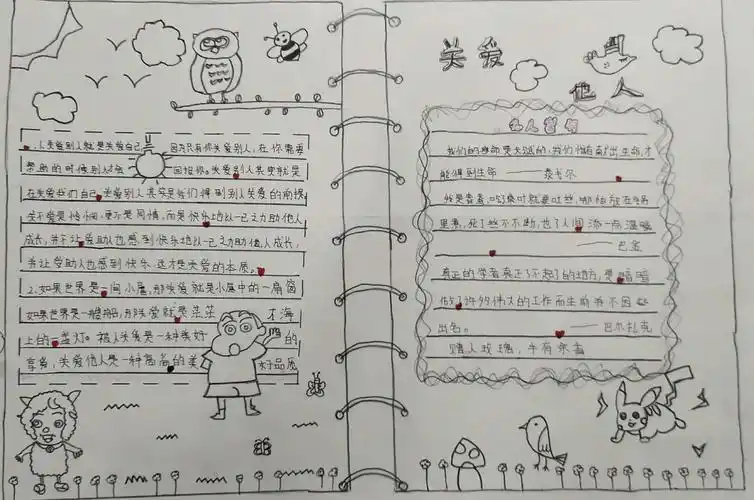 1.关爱别人就是关爱自己 因为只有你关爱别人,在你需要
帮助的时候别人才会 回报你。关爱别人其实就是
在关爱我们自己,关爱别人其实是我们得到别人关爱的前提
关爱是 ,更不是同情,而是快乐地以一己之力助他人
成长,并不让受助人也感到快乐地以一己之力助他人成长,
并让受助人也感到快乐,这才是关爱的本质。
2.如果世界是一间小屋,那关爱就是小屋中的一扇窗
如果世界是一艘船,那关爱就是茫茫 大海
上的一盏灯。被人关爱是一种美好 的
享受,关爱他人是一种高尚的美 好品质
关爱
他人
名人警句
我们的生命是天赋的,我们惟有献出生命,才
能得到生命 ——泰戈尔
我是春蚕,吃了桑叶就要吐丝,哪怕放在锅
里煮,死了丝不断,也 了人间添一点温暖
——巴金
真正的学者真正了不起的地方,是暗暗
做了许多伟大的工作而生前并不因此
出名。 ——巴尔扎克
赠人玫瑰,手有余香